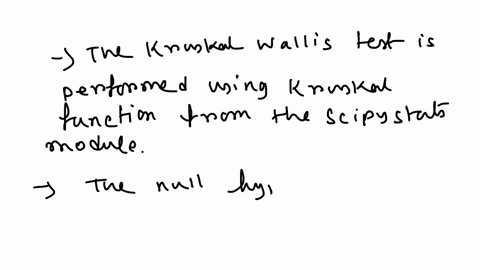 → The Kruskal Wallis test is
performed using Kruskal
function from the Scipystats
module.
→ The null hy